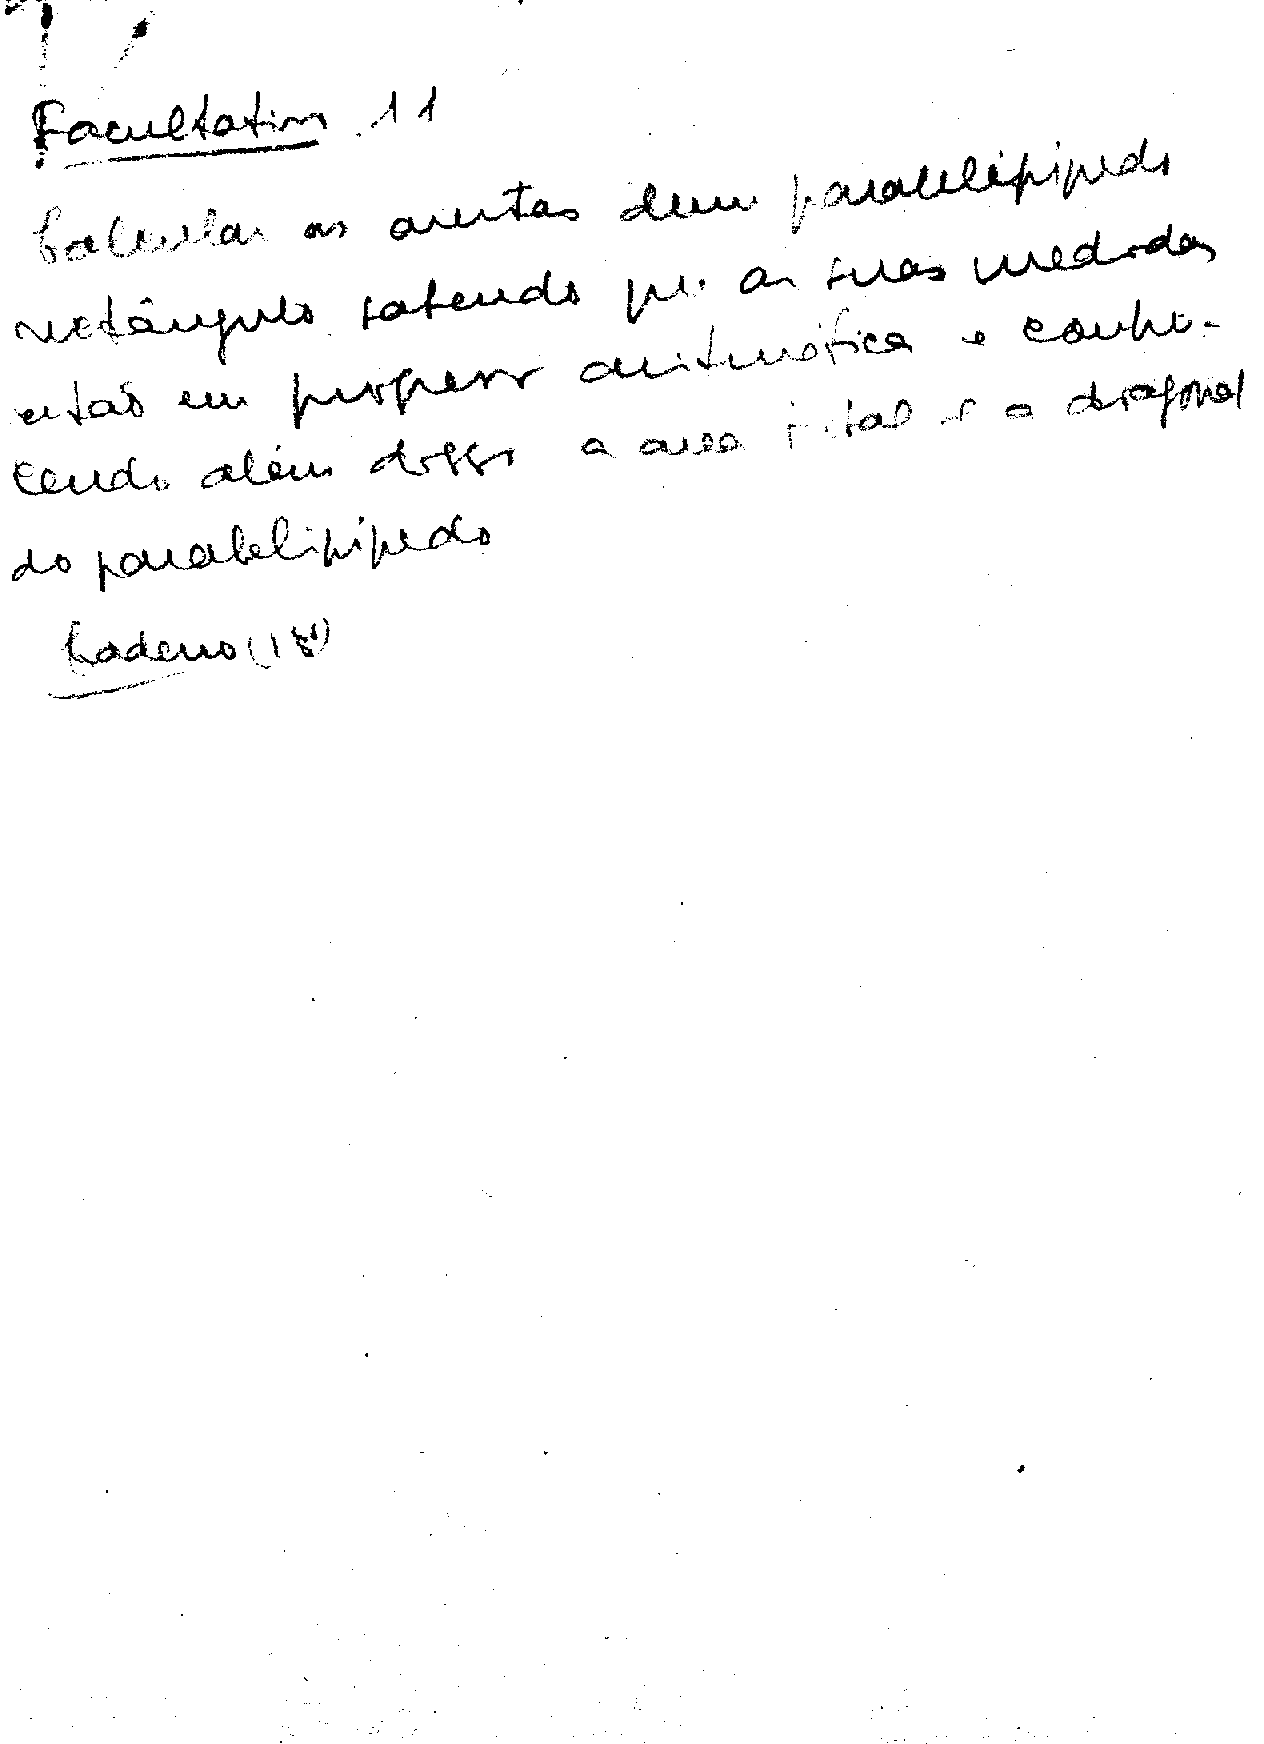 Facultativo 11
Calcular as arestas dum paralelipipedo
rectângulo sabendo que as suas medidas
estão em progressão aritmética e conhe-
cendo além disso a area total e a diagonal
do paralelipipedo
Caderno